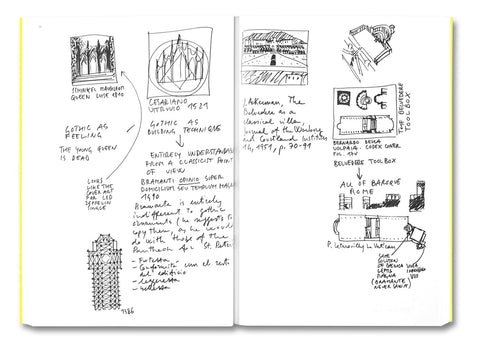 SCHINKEL MAUSOLEUM
QUEEN LUISE 1810
GOTHIC AS
FEELING
THE YOUNG QUEEN
IS DEAD
LOOKS
LIKE THE
COVER ART
FOR LED
ZEPPELIN
1386
CESARIANO
VITRUVIO 1521
GOTHIC AS
BUILDING TECHNIQUE
ENTIRELY UNDERSTANDABLE
FROM A CLASSICIST POINT
OF VIEW
BRAMANTI OPINIO SUPER
DOMICILIUM SEU TEMPLUM MAGNUM
1490
Bramante is entirely
indifferent to gothic
ornaments (he suggests to
copy them, as he would
do with those of the
Pantheon for St. Peter)
- Fortezza
- Conformità con el resto
del edificio
- Legiereza
- Bellezza
J. Ackerman, The
Belvedere as a
classical villa,
Journal of the Warburg
and Courtauld Institutes
14, 1951, p. 70-91
THE BELVEDERE
TOOLBOX
BERNARDO DELLA
VOLPAIA, CODEX CONER
FOL. 17V
BELVEDERE TOOLBOX
ALL OF BAROQUE
ROME
P. Letarouilly Le Vatican
SAME
(BRAMANTE
NEVER SAW IT)
VIII